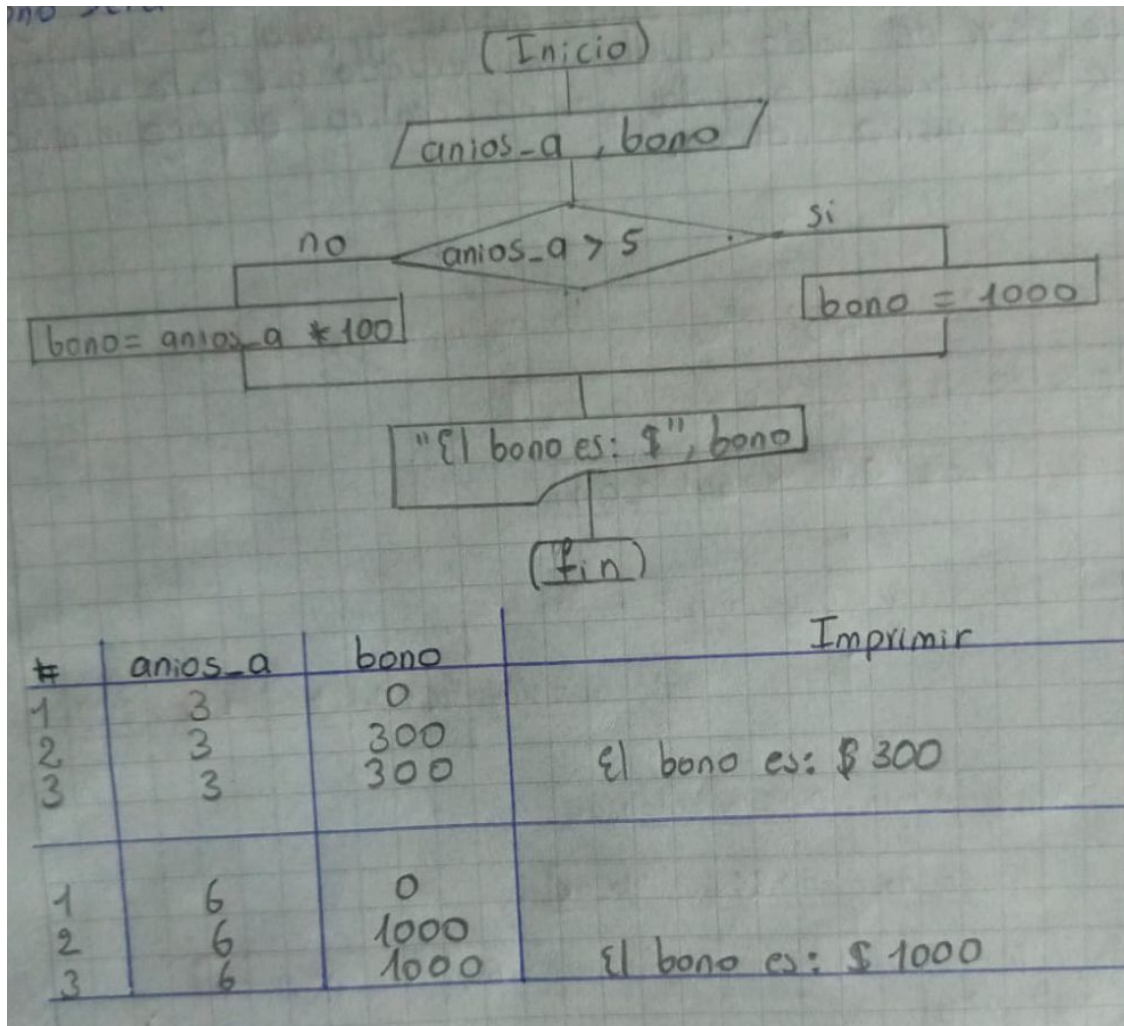 (Inicio)
anios_a , bono
anios_a > 5
no
si
bono= anios_a * 100
bono = 1000
"El bono es: $", bono
(fin)
# anios_a bono Imprimir
1 3 0
2 3 300
3 3 300 El bono es: $ 300
1 6 0
2 6 1000
3 6 1000 El bono es: $ 1000